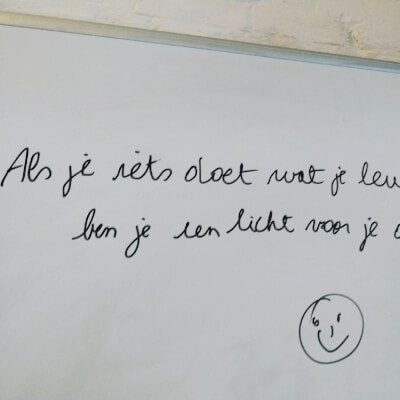 Als je iets doet wat je
ben je een licht voor je